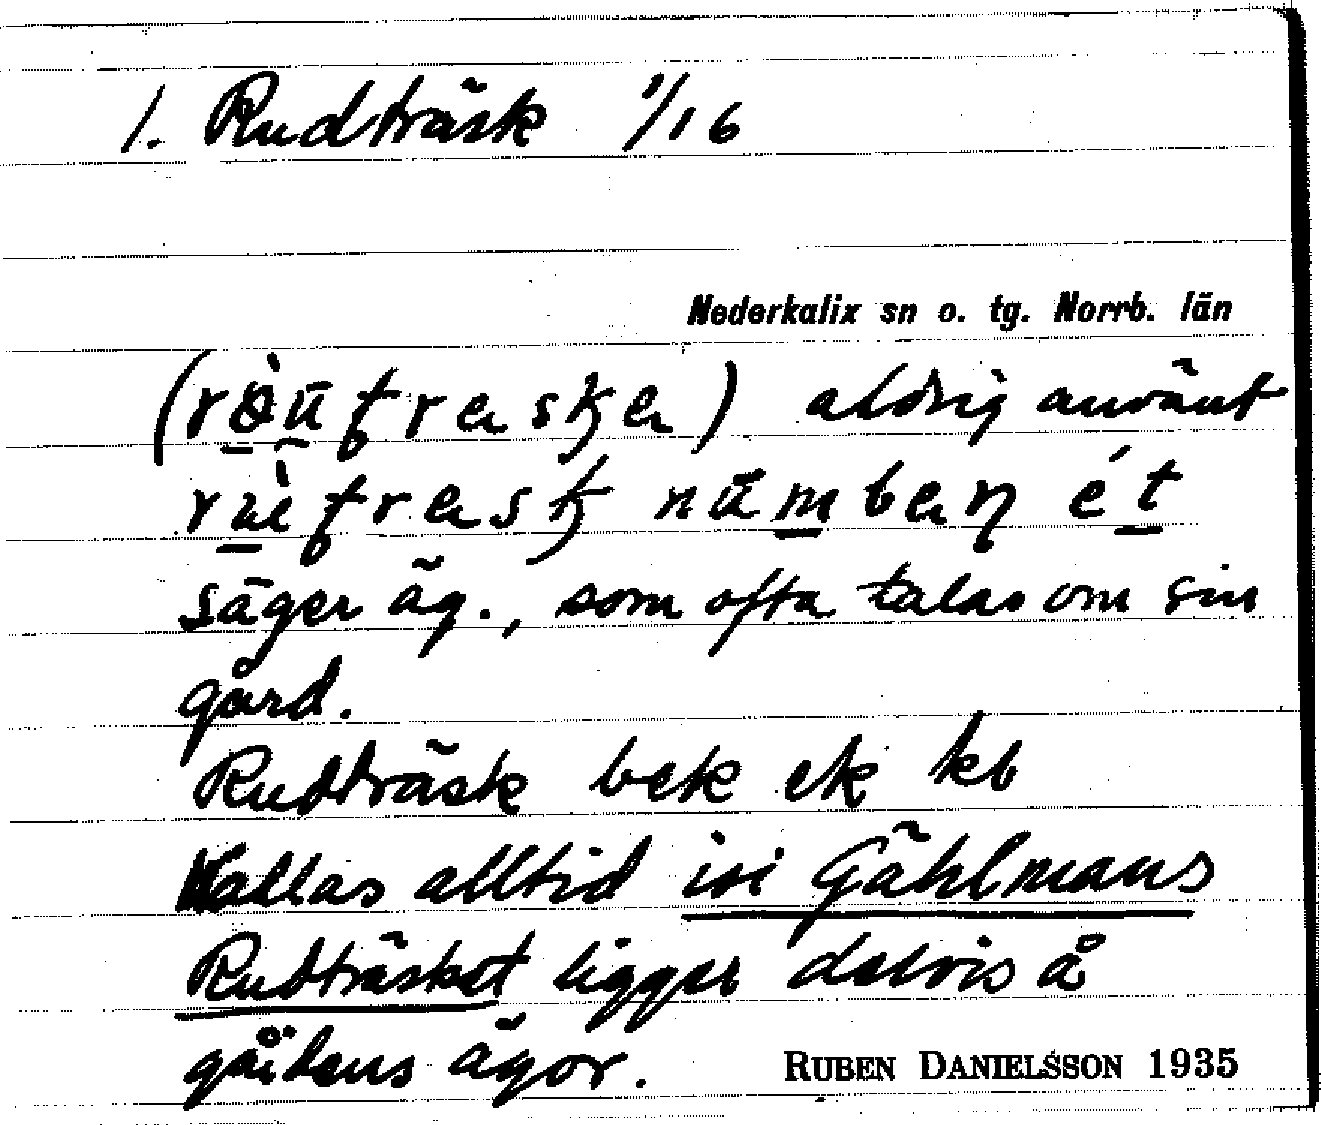 1. Rudträsk 1/16
Nederkalix sn o. tg. Norrb. län
aldrig använt
ét
säger äg., som ofta talas om sin
gård.
Rudträsk bek ek kb
Kallas alltid isi Gählmans
Rudträsket ligger delvis å
gårdens ägor.
RUBEN DANIELSSON 1935